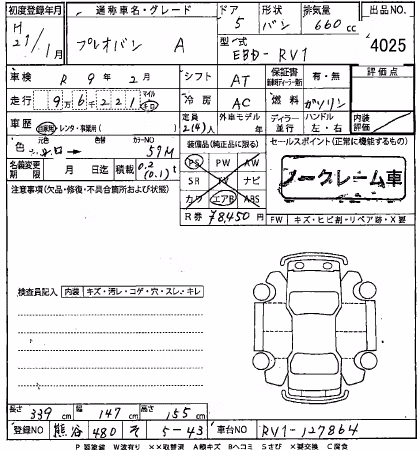 初度登録年月 通称車名・グレード ドア 形状 排気量 出品NO.
H21/1月 プレオバン A 5 バン 660cc 4025
型式 EBD-RV1
車検 R 9年 2月 シフト AT 保証書 有・無 評価点
走行 9万6千221 マイル km 冷房 AC 燃料 ガソリン
車歴 自家用・レンタ・事業用( ) 定員 2(4)人 外車モデル 年 ディーラー 並行 ハンドル 左・右 内装評価
色 元色 シロ → 色替 カラーNO 57M 装備品(純正品に限る) セールスポイント(正常に機能するもの)
PS PW AW
名義変更期限 月 日迄 積載 0.2(0.1)t SR TV ナビ ノークレーム車
注意事項(欠品・修復・不具合箇所および状態) カワ エアB ABS
R券 ¥8,450 FW キズ・ヒビ割・リペア跡・X要
検査員記入 内装 キズ・汚レ・コゲ・穴・スレ・キレ
長さ 339cm 幅 147cm 高さ 155cm
登録NO 熊谷 480 そ 5-43 車台NO RV1-127864
P 要塗装 W 波有り XX取替済 A 線キズ Bヘコミ Sさび X要交換 C腐食